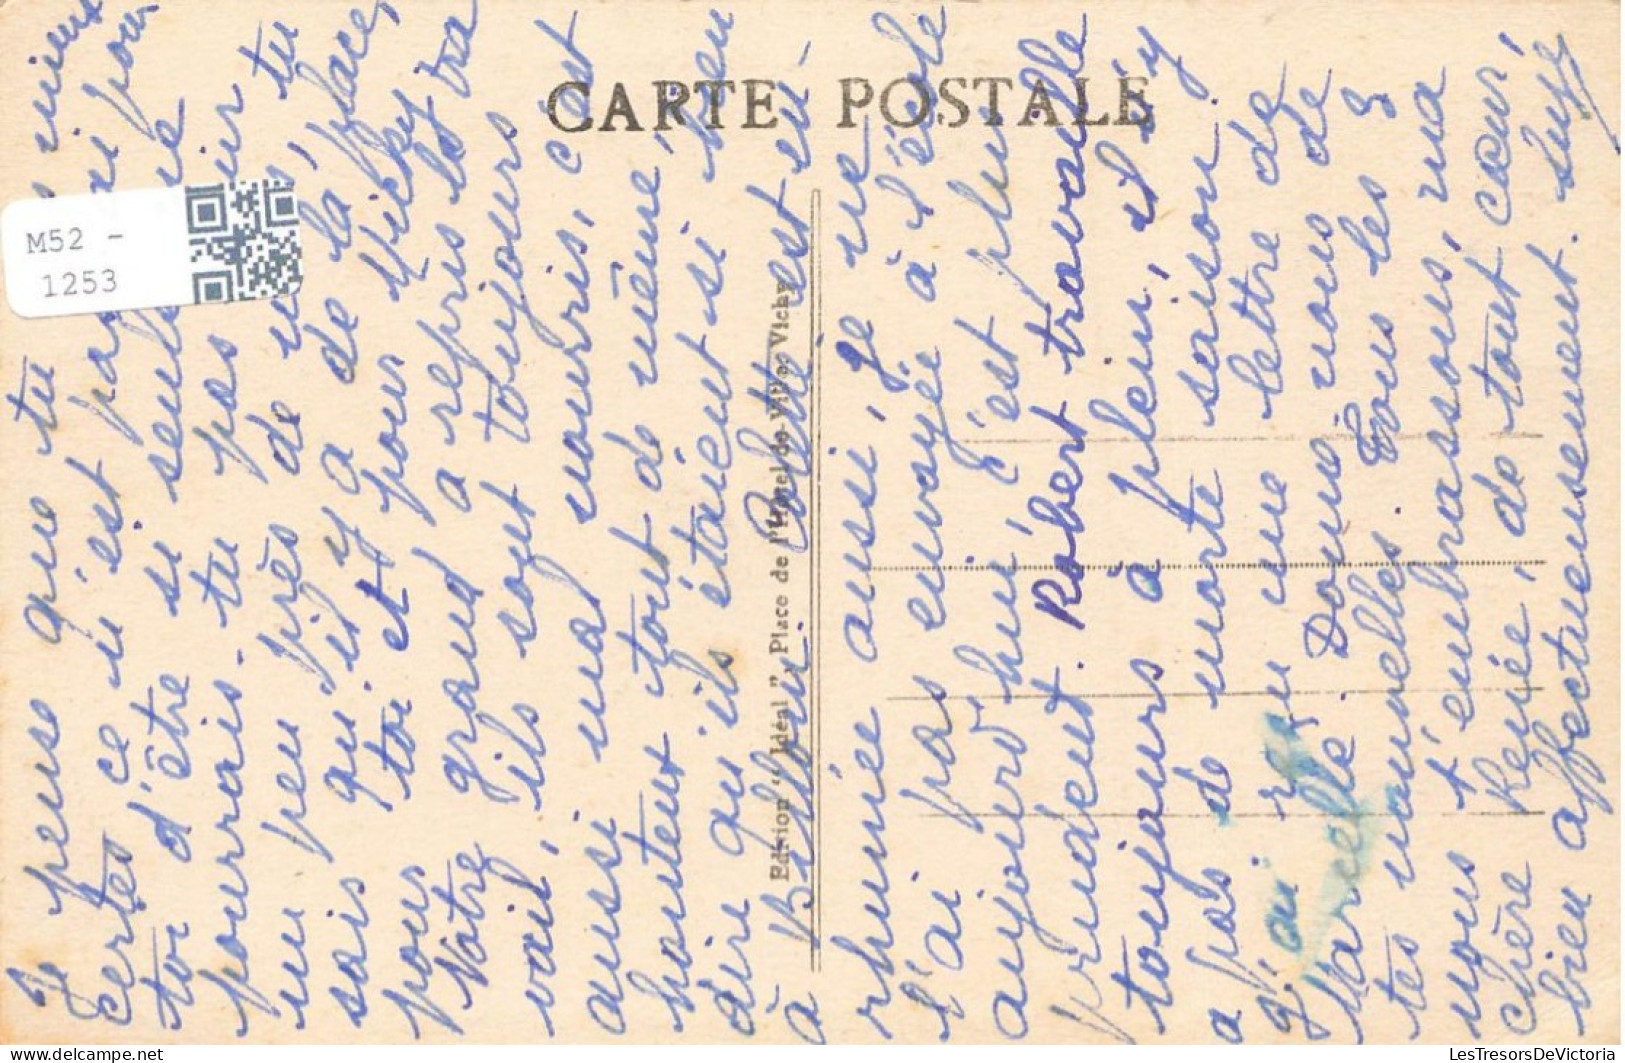 CARTE POSTALE
M52 -
1253
Edition “Idéal” Place de l'Hôtel-de-Ville, Vichy
Je pense que tu mieux
certes ce n'est pas pour
toi d'être si seule. Je
pourrais. tu pas
un peu près de nous, tu
sais qu'il y a de la place,
pour toi et pour Vichy
Notre grand a repris le tra
vail, ils sont toujours
aussi mal nourris, c'est
honteux tout de même,
dire qu'ils étaient si bien
à Billom. Colette est en-
rhumée aussi, je ne
l'ai pas envoyée à l'école
aujourd'hui, c'est plus
prudent. Robert travaille
toujours à plein, il n'y
a pas de morte saison.
J'ai reçu une lettre de
Marcelle. Donne nous de
tes nouvelles. Tous les 3
nous t'embrassons, ma
chère Renée, de tout cœur
bien affectueusement. Suzé
LesTresorsDeVictoria